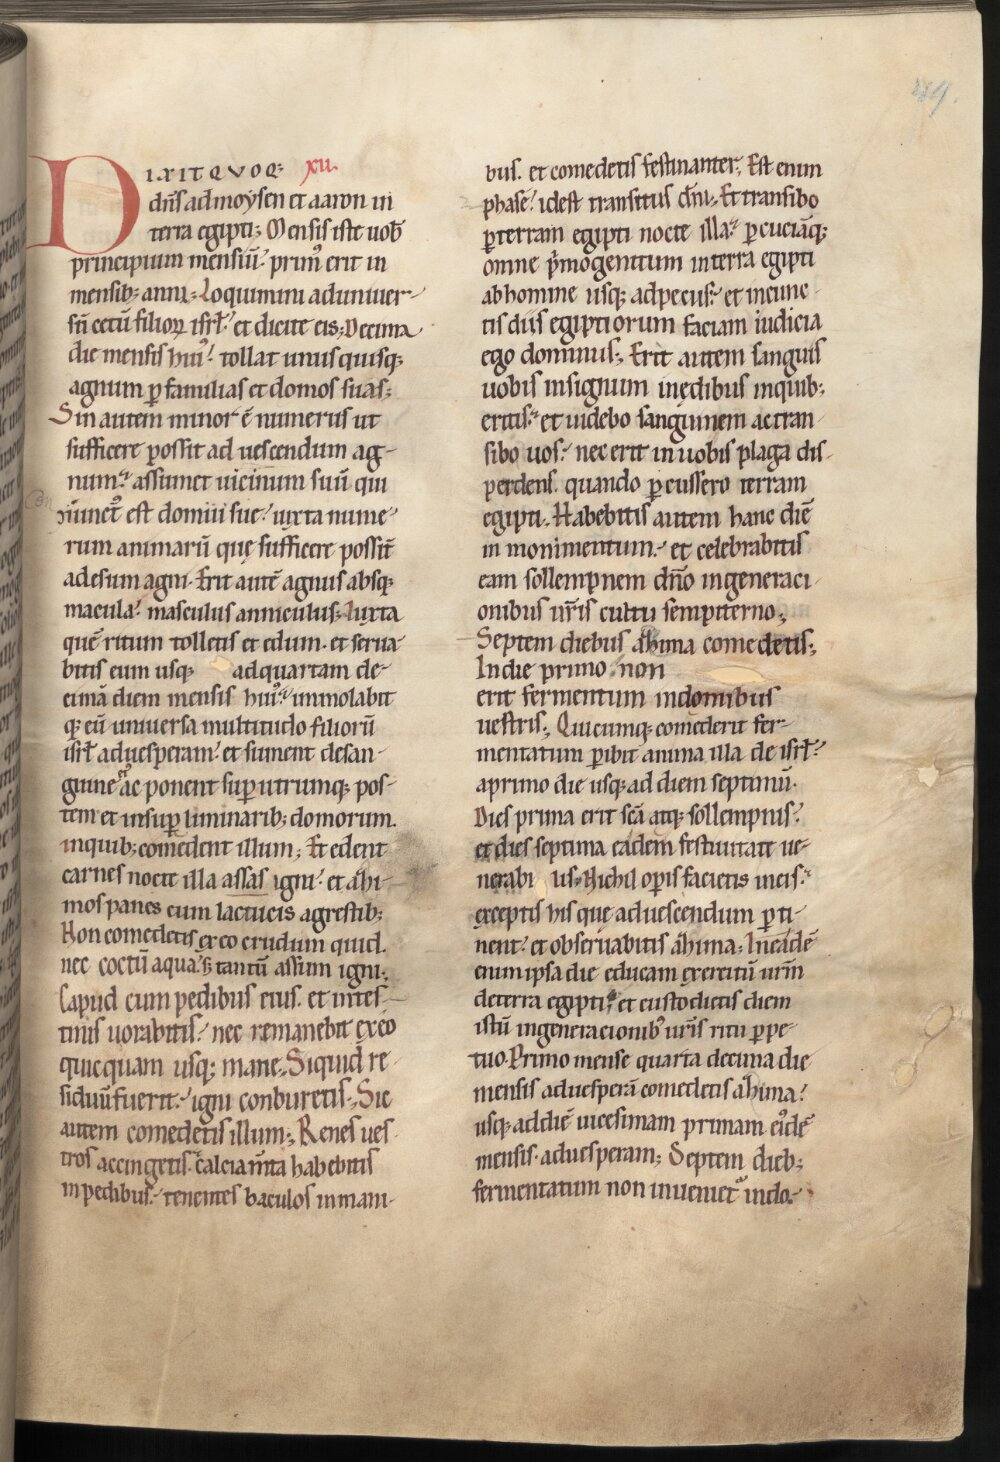 DIXIT QVOQ: XII.
dn̄s ad moysen et aaron in
terra egipti; Mensis iste uob̄
principium mensiū. primꝰ erit in
mensib; anni; Loquimini ad uniuer-
sū cetū filioꝝ isrl̄. et dicite eis; Decima
die mensis huiꝰ. tollat unusquisq;
agnum ꝑ familias et domos suas;
Sin autem minor ē numerus ut
sufficere possit ad uescendum ag-
num. assumet uicinum suū qui
iūnctꝰ est domui sue. iuxta nume
rum animarū que sufficere possūt
ad esum agni. Erit autē agnus absq;
macula. masculus anniculus; Iuxta
quē ritum tolletis et edum. et serua
bitis eum usq; ad quartam de-
cimā diem mensis huiꝰ. immolabit
q; eū uniuersa multitudo filiorū
isrl̄ ad uesperam. et sument de san-
guine ac ponent suꝑ utrumq; pos-
tem et in suꝑ liminarib; domorum.
in quib; comedent illum; Et edent
carnes nocte illa assas igni. et azi
mos panes cum lactucis agrestib;
Non comedetis ex eo crudum quid.
nec coctū aqua. s; tantū assum igni;
Capud cum pedibus eius. et intes-
tinis uorabitis. nec remanebit ex eo
quicquam usq; mane. Siquid re-
siduū fuerit. igni conburetis; Sic
autem comedetis illum; Renes ues-
tros accingetis. calciam̄ta habebitis
in pedibus. tenentes baculos in mani-
249.
bus. et comedetis festinanter; Est enim
phase. id est transitus dn̄i; Et transibo
ꝑ terram egipti nocte illa. ꝑcuciāq;
omne p̄mogenitum in terra egipti
ab homine usq; ad pecus. et in cunc-
tis diis egiptiorum faciam iudicia
ego dominus; Erit autem sanguis
uobis in signum in ędibus in quib;
eritis. et uidebo sanguinem ac tran-
sibo uos. nec erit in uobis plaga dis-
perdens. quando ꝑcussero terram
egipti. Habebitis autem hanc diē
in monimentum. et celebrabitis
eam sollempnem dn̄o in generaci-
onibus ūris cultu sempiterno;
Septem diebus azima comedetis;
In die primo non
erit fermentum in domibus
uestris; Quicumq; comederit fer-
mentatum ꝑibit anima illa de isrl̄.
a primo die usq; ad diem septimū.
Dies prima erit sc̄a atq; sollempnis.
et dies septima eadem festiuitate ue-
nerabi us; Nichil opis facietis in eis.
exceptis his que ad uescendum ꝑti-
nent. et obseruabitis azima; In eadē
enim ipsa die educam exercitū ur̄m
de terra egipti. et custodietis diem
istū in generacionibꝰ ur̄is ritu ꝑpe-
tuo. Primo mense quarta decima die
mensis ad uesperā comedetis azima.
usq; ad diē uicesimam primam eiꝰdē
mensis. ad uesperam; Septem dieb;
fermentatum non inuenietꝰ in do-